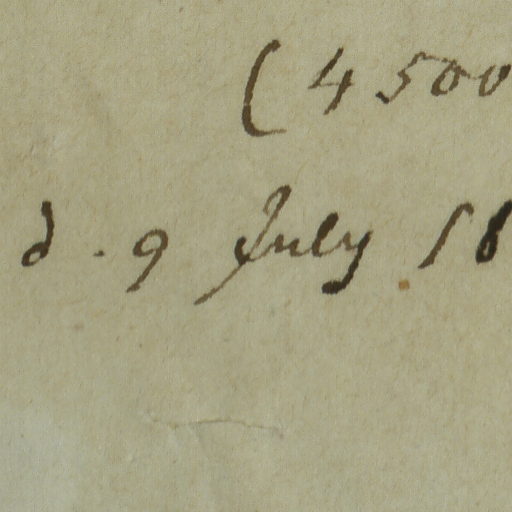 ( 4500
d. 9 July 18